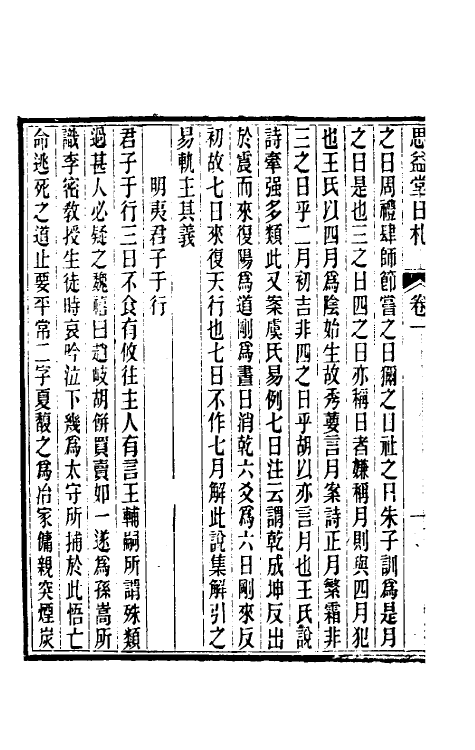 思益堂日札 卷一
之日周禮肆師節嘗之日獮之日社之日朱子訓爲是月
之日是也三之日四之日亦稱日者嫌稱月則與四月犯
也王氏以四月爲陰始生故秀葽言月案詩正月繁霜非
三之日乎二月初吉非四之日乎胡以亦言月也王氏說
詩牽强多類此又案虞氏易例七日注云謂乾成坤反出
於震而來復陽爲道剛爲晝日消乾六爻爲六日剛來反
初故七日來復天行也七日不作七月解此說集解引之
易軌主其義
明夷君子于行
君子于行三日不食有攸往主人有言王輔嗣所謂殊類
過甚人必疑之魏禧曰趙岐胡餅買賣如一遂爲孫嵩所
識李密敎授生徒時哀吟泣下幾爲太守所捕於此悟亡
命逃死之道止要平常二字夏馥之爲冶家傭親突煙炭